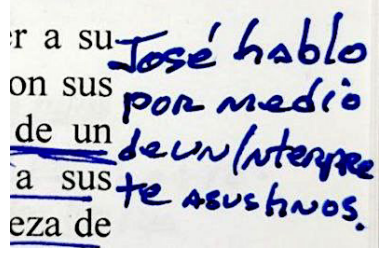 r a su
on sus
de un
a sus
eza de
José hablo
por medio
de un Interpre
te a sus hnos.